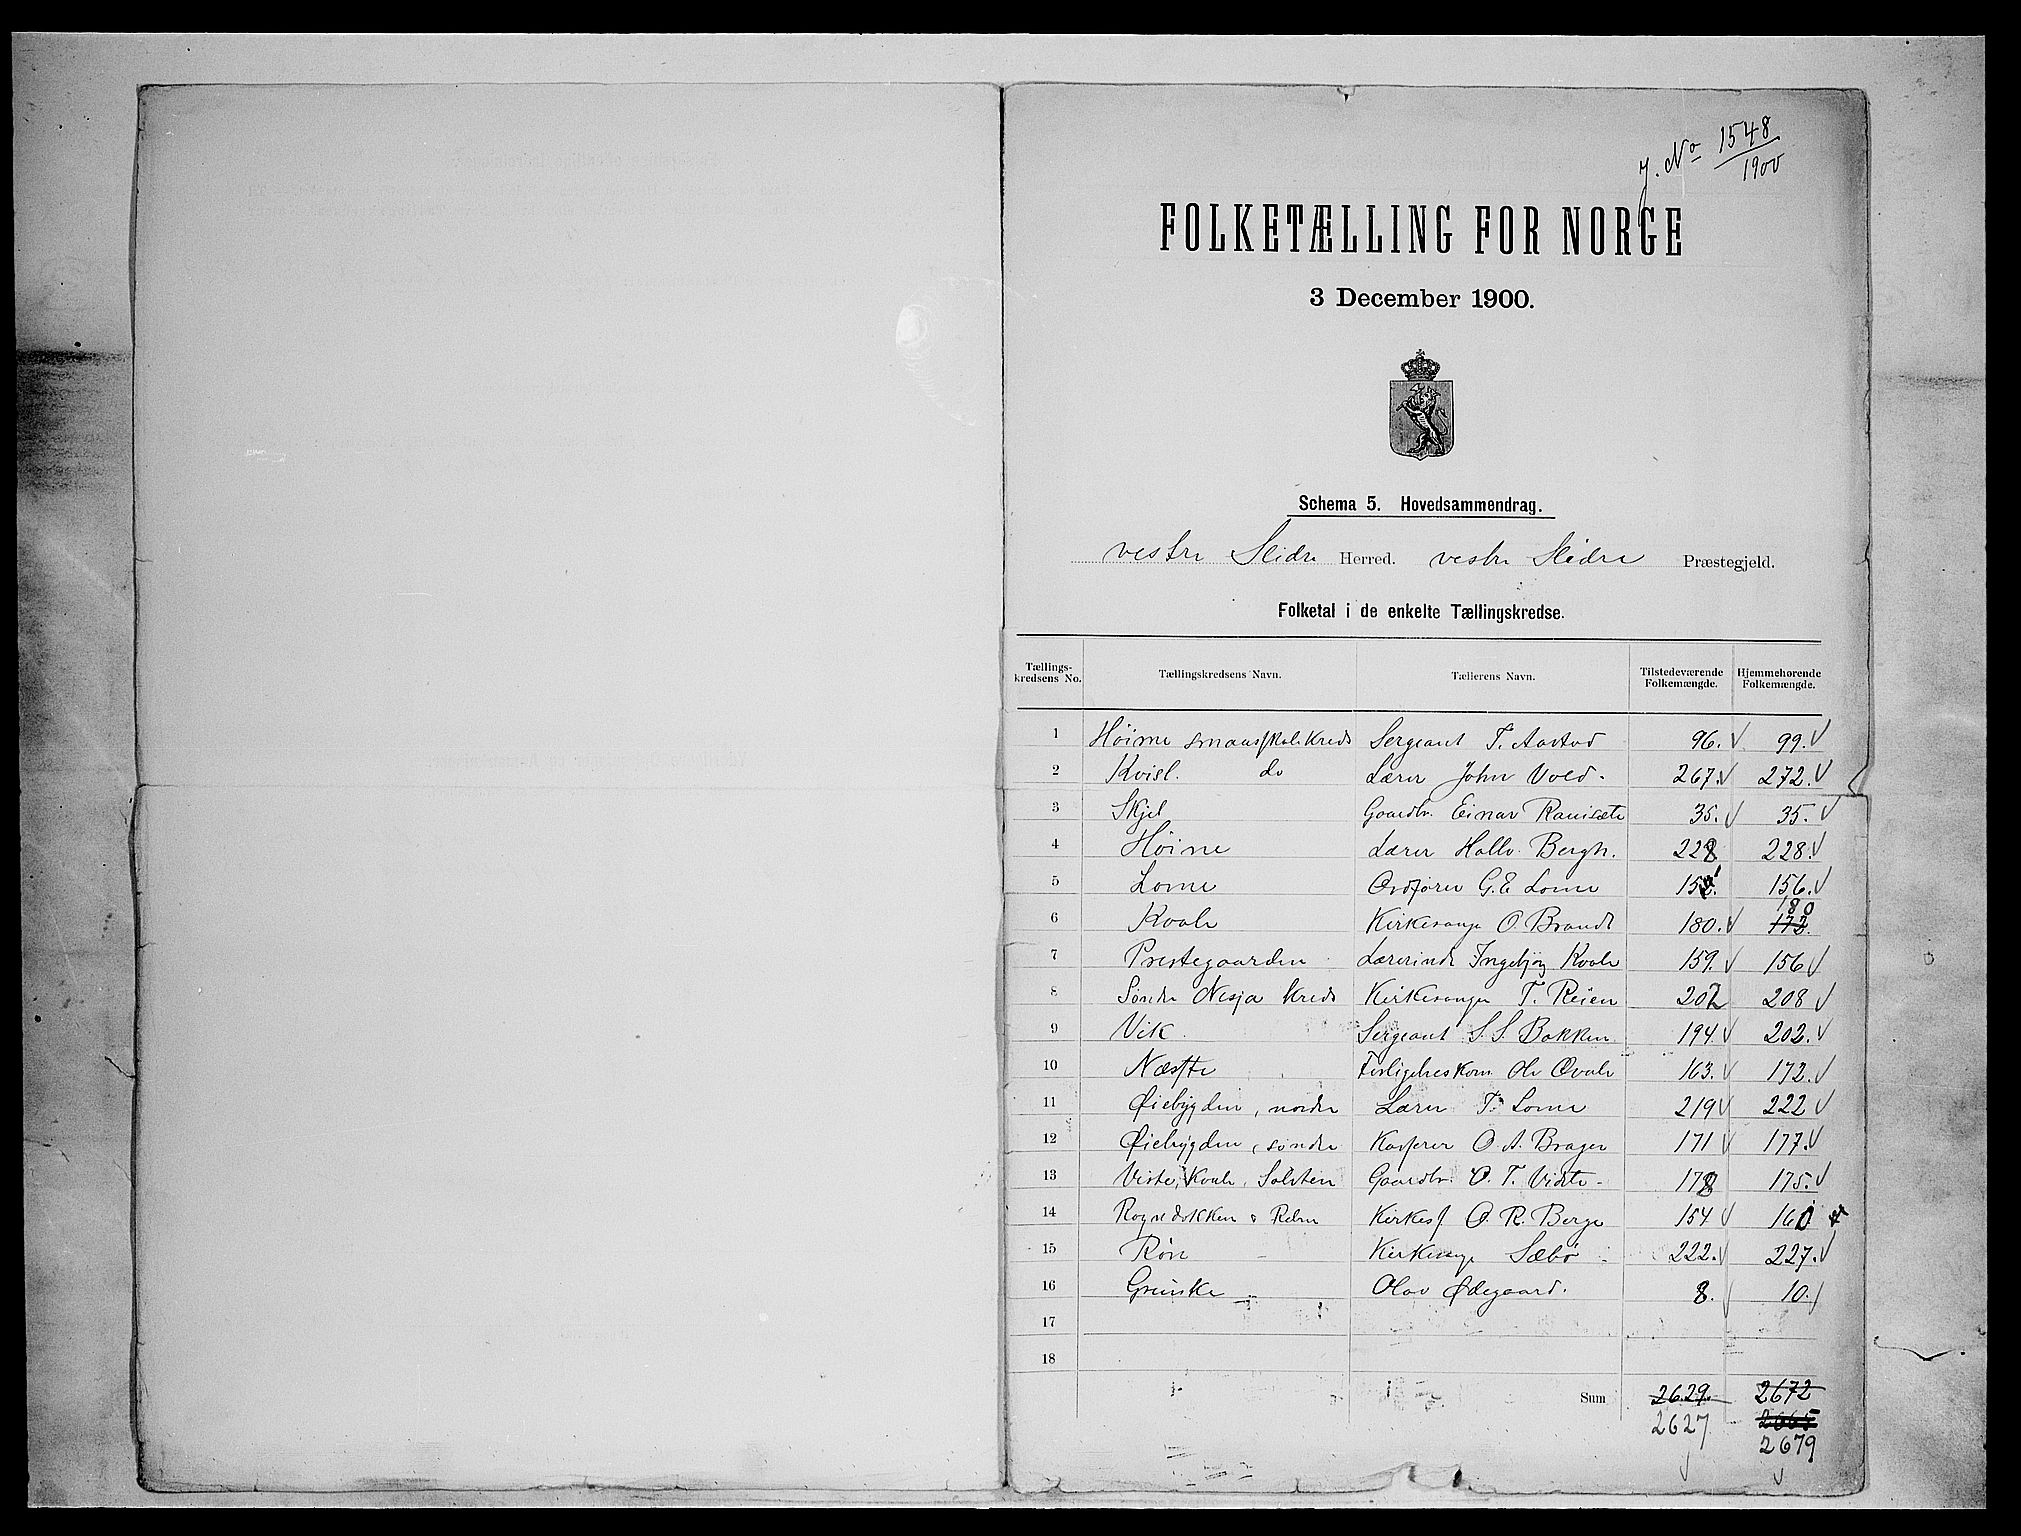 J. No 1548/1900
FOLKETÆLLING FOR NORGE
3 December 1900.
Schema 5. Hovedsammendrag.
vestre Slidre Herred. vestre Slidre Præstegjeld.
Folketal i de enkelte Tællingskredse.
Tællings-kredsens No. Tællingskredsens Navn. Tællerens Navn. Tilstedeværende Folkemængde. Hjemmehørende Folkemængde.
1 Høime smaaskolekreds Sergeant T. Aastad 96. 99.
2 Kvisl. do Lærer John Vold. 267. 272.
3 Skjel Gaardbr. Einar 35. 35.
4 Høine Lærer Hallv. Bergh. 228 228.
5 Lome Ordfører G. E. Lome 156.
6 Kvale Kirkesanger O. Brandt 180. 172. 180
7 Prestegaarden Lærerinde Ingebjør Kvale 159. 156
8 Søndre Nesja kreds Kirkesanger T. Reien 207 208
9 Vik. Sergeant S. S. Bakken 194. 202.
10 Næste Forligelseskom. Ole Qvale 163. 172.
11 Øiebygden, nordre Lærer T. Lome 219 222
12 Øiebygden, søndre Kasserer O. A. Brager 171 177.
13 Viste, Kvale, Gaardbr. O. T. Viste 178 175.
14 Rognedokken & Kirkes. O. R. Berge 154 160
15 Røn Kirkesanger Sæbø 222. 227.
16 Grunke Olav Ødegaard. 8. 10.
17
18
Sum 2629. 2672
2627 2665
2679